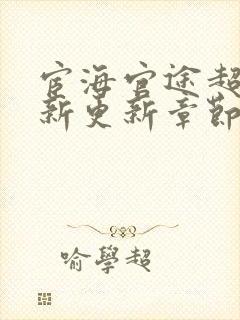 宦海官途超
新更新章節
喻學超